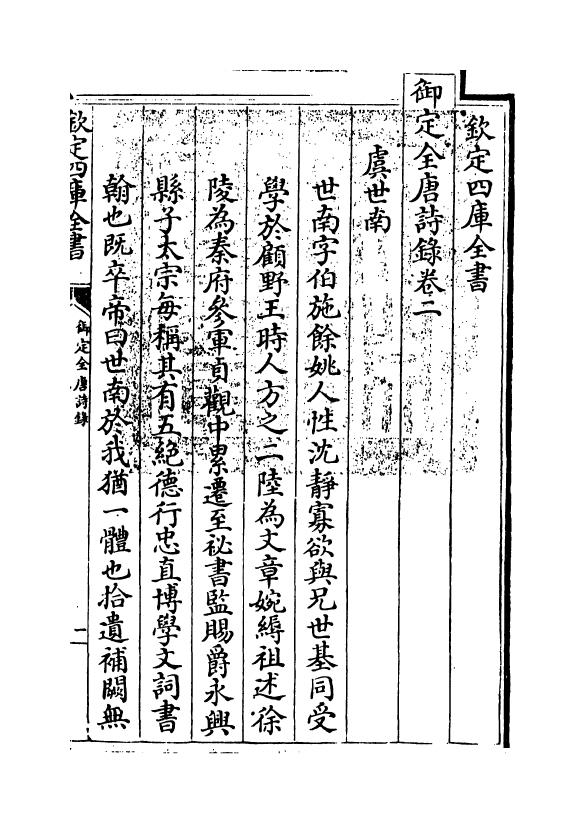 欽定四庫全書
御定全唐詩錄卷二
虞世南
世南字伯施餘姚人性沈靜寡欲與兄世基同受
學於顧野王時人方之二陸為文章婉縟祖述徐
陵為秦府參軍貞觀中累遷至祕書監賜爵永興
縣子太宗每稱其有五絕德行忠直博學文詞書
翰也既卒帝曰世南於我猶一體也拾遺補闕無
欽定四庫全書
御定全唐詩錄